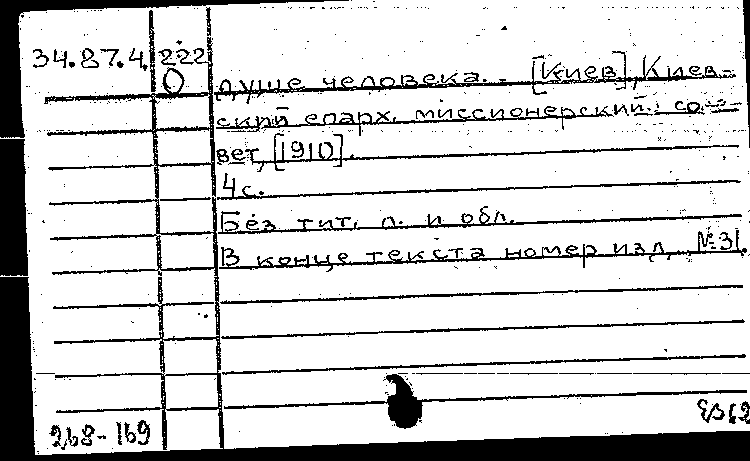 34.87.4. 222
О душе человека. - [Киев], Киев-
ский епарх. миссионерский со-
вет, [1910].
4 с.
Без тит. л. и обл.
В конце текста номер изд. №31.
268-169